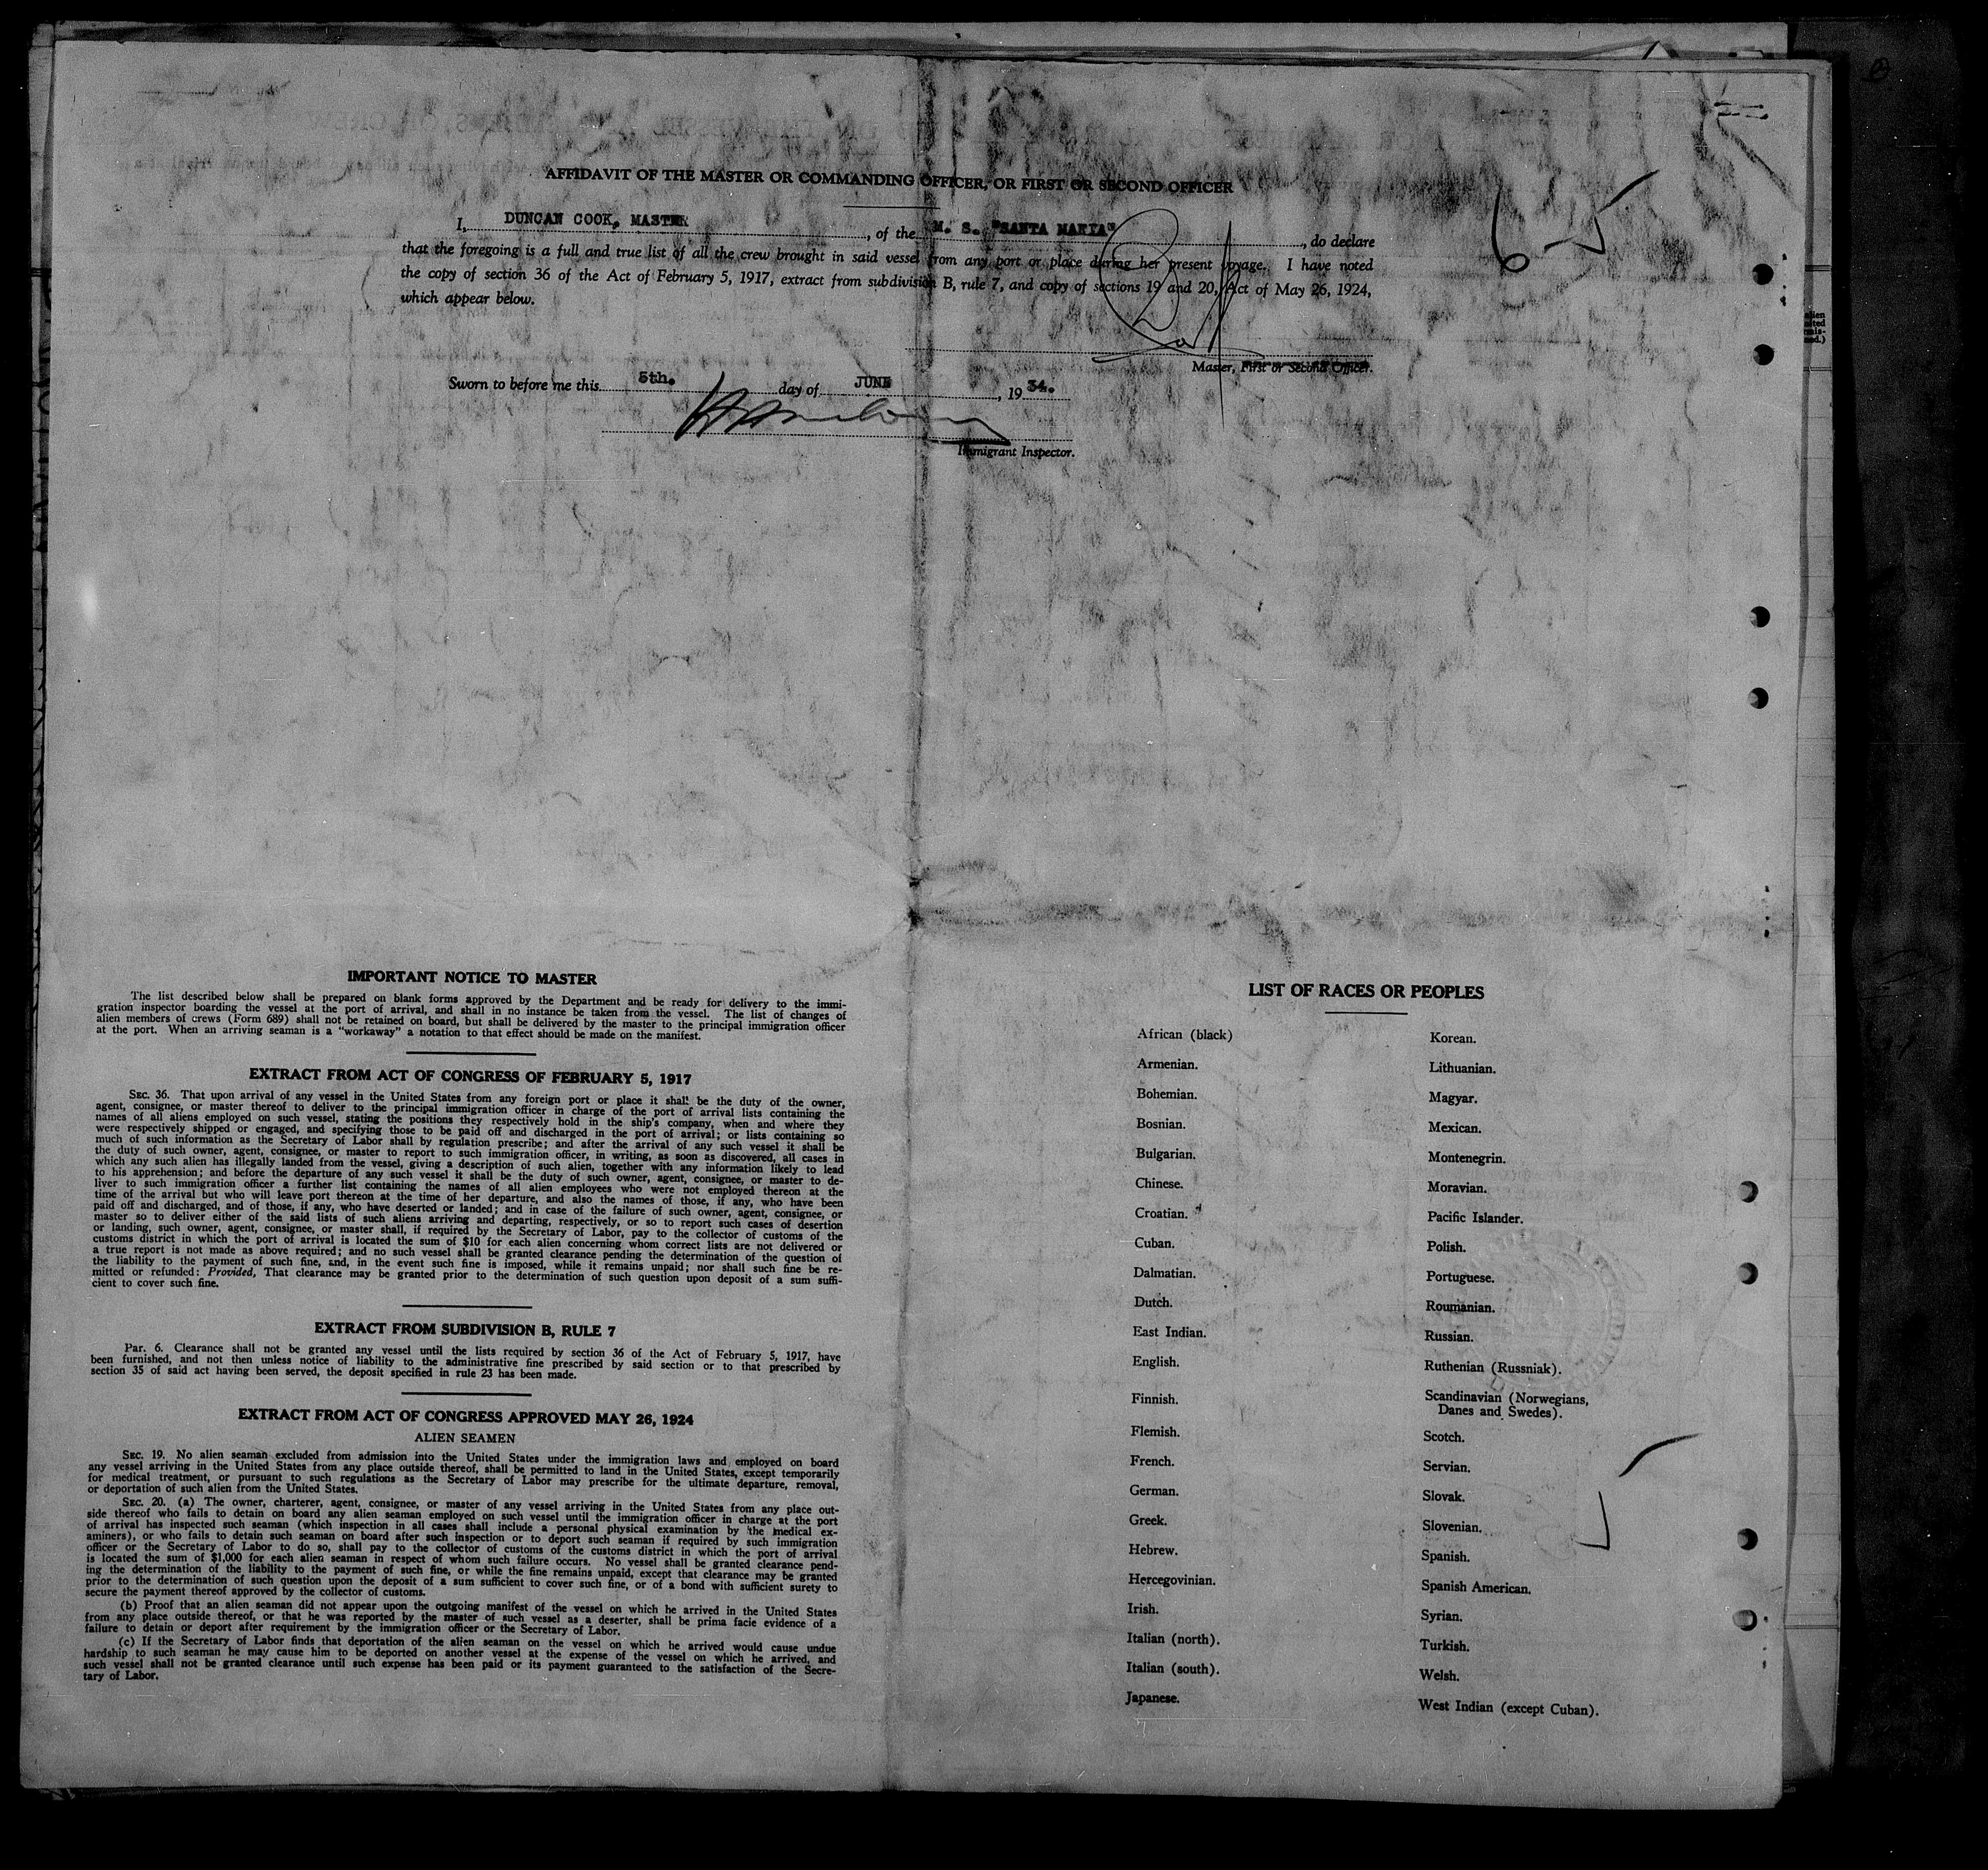 AFFIDAVIT OF THE MASTER OR COMMANDING OFFICER, OR FIRST OR SECOND OFFICER
I, DUNCAN COOK, MASTER, of the M. S. "SANTA MARIA", do declare
that the foregoing is a full and true list of all the crew brought in said vessel from any port or place during her present voyage. I have noted
the copy of section 36 of the Act of February 5, 1917, extract from subdivision B, rule 7, and copy of sections 19 and 20, Act of May 26, 1924,
which appear below.
Master, First or Second Officer.
Sworn to before me this 5th. day of JUNE, 1934.
Immigrant Inspector.
6-5
IMPORTANT NOTICE TO MASTER
The list described below shall be prepared on blank forms approved by the Department and be ready for delivery to the immi-
gration inspector boarding the vessel at the port of arrival, and shall in no instance be taken from the vessel. The list of changes of
alien members of crews (Form 689) shall not be retained on board, but shall be delivered by the master to the principal immigration officer
at the port. When an arriving seaman is a "workaway" a notation to that effect should be made on the manifest.
EXTRACT FROM ACT OF CONGRESS OF FEBRUARY 5, 1917
SEC. 36. That upon arrival of any vessel in the United States from any foreign port or place it shall be the duty of the owner,
agent, consignee, or master thereof to deliver to the principal immigration officer in charge of the port of arrival lists containing the
names of all aliens employed on such vessel, stating the positions they respectively hold in the ship's company, when and where they
were respectively shipped or engaged, and specifying those to be paid off and discharged in the port of arrival; or lists containing so
much of such information as the Secretary of Labor shall by regulation prescribe; and after the arrival of any such vessel it shall be
the duty of such owner, agent, consignee, or master to report to such immigration officer, in writing, as soon as discovered, all cases in
which any such alien has illegally landed from the vessel, giving a description of such alien, together with any information likely to lead
to his apprehension; and before the departure of any such vessel it shall be the duty of such owner, agent, consignee, or master to de-
liver to such immigration officer a further list containing the names of all alien employees who were not employed thereon at the
time of the arrival but who will leave port thereon at the time of her departure, and also the names of those, if any, who have been
paid off and discharged, and of those, if any, who have deserted or landed; and in case of the failure of such owner, agent, consignee, or
master so to deliver either of the said lists of such aliens arriving and departing, respectively, or so to report such cases of desertion
or landing, such owner, agent, consignee, or master shall, if required by the Secretary of Labor, pay to the collector of customs of the
customs district in which the port of arrival is located the sum of $10 for each alien concerning whom correct lists are not delivered or
a true report is not made as above required; and no such vessel shall be granted clearance pending the determination of the question of
the liability to the payment of such fine, and, in the event such fine is imposed, while it remains unpaid; nor shall such fine be re-
mitted or refunded: Provided, That clearance may be granted prior to the determination of such question upon deposit of a sum suffi-
cient to cover such fine.
EXTRACT FROM SUBDIVISION B, RULE 7
PAR. 6. Clearance shall not be granted any vessel until the lists required by section 36 of the Act of February 5, 1917, have
been furnished, and not then unless notice of liability to the administrative fine prescribed by said section or to that prescribed by
section 35 of said act having been served, the deposit specified in rule 23 has been made.
EXTRACT FROM ACT OF CONGRESS APPROVED MAY 26, 1924
ALIEN SEAMEN
SEC. 19. No alien seaman excluded from admission into the United States under the immigration laws and employed on board
any vessel arriving in the United States from any place outside thereof, shall be permitted to land in the United States, except temporarily
for medical treatment, or pursuant to such regulations as the Secretary of Labor may prescribe for the ultimate departure, removal,
or deportation of such alien from the United States.
SEC. 20. (a) The owner, charterer, agent, consignee, or master of any vessel arriving in the United States from any place out-
side thereof who fails to detain on board any alien seaman employed on such vessel until the immigration officer in charge at the port
of arrival has inspected such seaman (which inspection in all cases shall include a personal physical examination by the medical ex-
aminers), or who fails to detain such seaman on board after such inspection or to deport such seaman if required by such immigration
officer or the Secretary of Labor to do so, shall pay to the collector of customs of the customs district in which the port of arrival
is located the sum of $1,000 for each alien seaman in respect of whom such failure occurs. No vessel shall be granted clearance pend-
ing the determination of the liability to the payment of such fine, or while the fine remains unpaid, except that clearance may be granted
prior to the determination of such question upon the deposit of a sum sufficient to cover such fine, or of a bond with sufficient surety to
secure the payment thereof approved by the collector of customs.
(b) Proof that an alien seaman did not appear upon the outgoing manifest of the vessel on which he arrived in the United States
from any place outside thereof, or that he was reported by the master of such vessel as a deserter, shall be prima facie evidence of a
failure to detain or deport after requirement by the immigration officer or the Secretary of Labor.
(c) If the Secretary of Labor finds that deportation of the alien seaman on the vessel on which he arrived would cause undue
hardship to such seaman he may cause him to be deported on another vessel at the expense of the vessel on which he arrived, and
such vessel shall not be granted clearance until such expense has been paid or its payment guaranteed to the satisfaction of the Secre-
tary of Labor.
LIST OF RACES OR PEOPLES
African (black)
Armenian.
Bohemian.
Bosnian.
Bulgarian.
Chinese.
Croatian.
Cuban.
Dalmatian.
Dutch.
East Indian.
English.
Finnish.
Flemish.
French.
German.
Greek.
Hebrew.
Hercegovinian.
Irish.
Italian (north).
Italian (south).
Japanese.
Korean.
Lithuanian.
Magyar.
Mexican.
Montenegrin.
Moravian.
Pacific Islander.
Polish.
Portuguese.
Roumanian.
Russian.
Ruthenian (Russniak).
Scandinavian (Norwegians,
Danes and Swedes).
Scotch.
Servian.
Slovak.
Slovenian.
Spanish.
Spanish American.
Syrian.
Turkish.
Welsh.
West Indian (except Cuban).